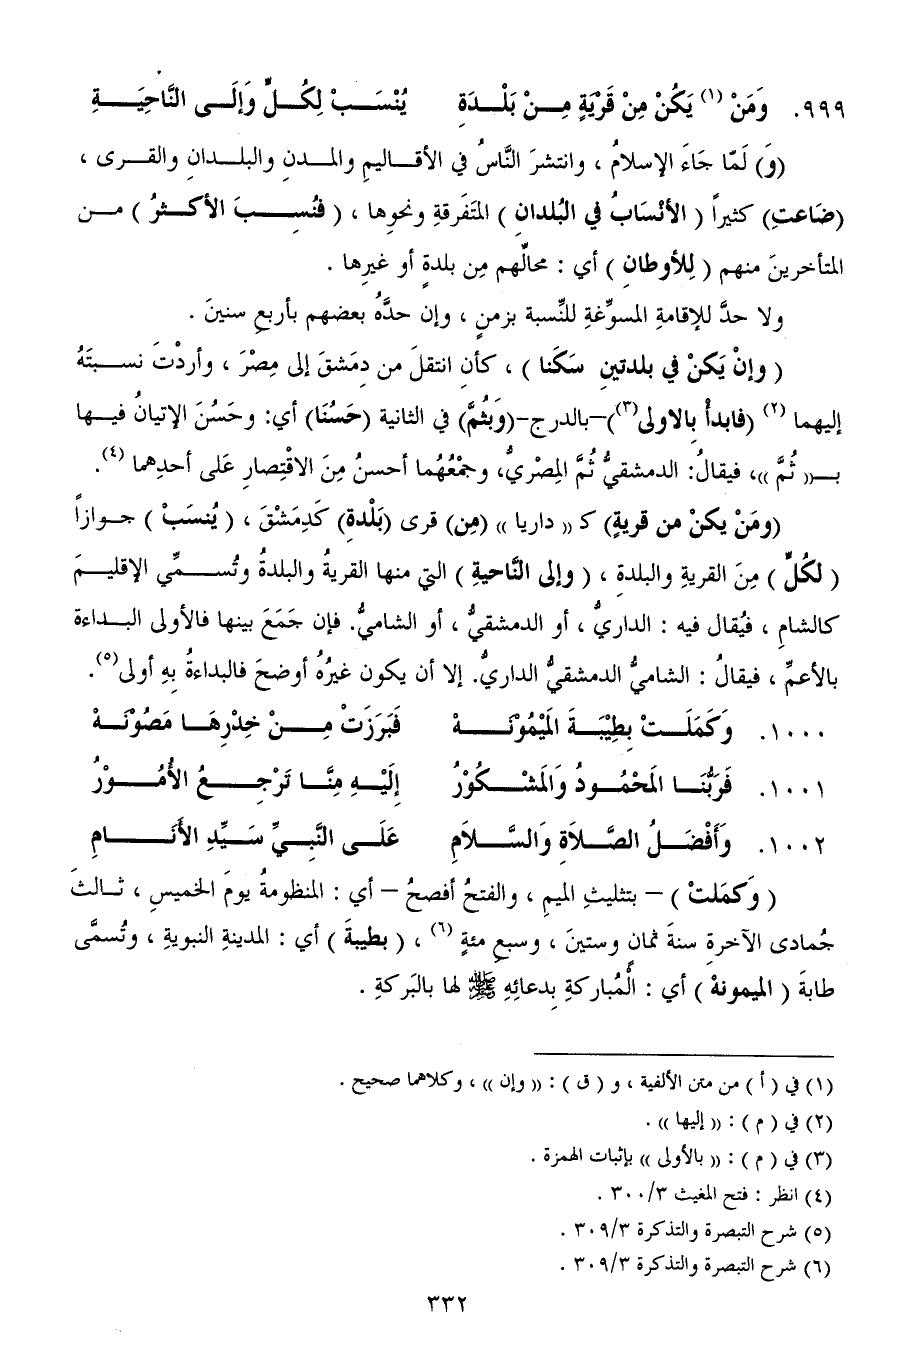 ٩٩٩. وَمَنْ (١) يَكُنْ مِنْ قَرْيَةٍ مِـنْ بَلْـدَةِ يُنْـسَـبْ لِكُــلٍّ وَإِلَـى النَّاحِيَـةِ
(وَ) لَمّا جَاءَ الإسلامُ ، وانتشرَ النَّاسُ في الأقـاليمِ والمـدنِ والبلـدانِ والقـرى ،
(ضَاعتِ) كثيراً ( الأنْسَابُ في البُلدانِ ) المتَفرقةِ ونحوِها ، ( فنُسِـبَ الأكـثرُ ) مـن
المتأخرينَ منهم ( لِلأوطانِ ) أي : محالِّهم مِن بلدةٍ أو غيرِها .
ولا حدَّ للإقامةِ المسوِّغةِ للنِّسبة بزمنٍ ، وإن حدَّهُ بعضهم بأربعِ سنينَ .
( وإنْ يَكنْ في بلدتينِ سَكَنا ) ، كأنِ انتقلَ من دمَشقَ إلى مِصْرَ ، وأردْتَ نسـبتَهُ
إليهما (٢) (فابدأْ بالاولى(٣))–بالدرج–(وَبثُمَّ) في الثانية (حَسُنَا) أي: وحَسُنَ الإتيانُ فيـها
بـ« ثُمَّ »، فيقالُ: الدمشقيُّ ثُمَّ المِصْريُّ، وجمْعُهُما أحسنُ مِنَ الاقْتِصارِ عَلى أحدِهما (٤).
(ومَنْ يكنْ من قريةٍ) كـ « داريا » (مِن) قرى (بَلْدةِ) كَدِمَشْقَ ، ( يُنسَبْ ) جـوازاً
( لكُلٍّ ) مِنَ القريةِ والبلدة ، ( وإلى النَّاحيةِ ) التي منها القريةُ والبلدةُ وتُسـمِّي الإقليـمَ
كالشامِ ، فيُقال فيه : الداريُّ ، أو الدمشقيُّ ، أو الشاميُّ. فإن جَمَعَ بينها فالأولى البـداءة
بالأعمِّ ، فيقالُ : الشاميُّ الدمشقيُّ الداريُّ. إلا أن يكون غيرُهُ أوضحَ فالبداءةُ بِهِ أولى(٥).
١٠٠٠. وَكَمَلَـتْ بِطِيْبَـةَ المَيْمُونَـهْ فَبَرَزَتْ مِـنْ خِدْرِهَـا مَصُوْنَـهْ
١٠٠١. فَرَبُّنَـا المَحْمُـودُ وَالمَشْـكُوْرُ إِلَيْـهِ مِنَّـا تَرْجِـعُ الأُمُـوْرُ
١٠٠٢. وَأَفْضَـلُ الصَّـلاَةِ وَالسَّـلاَمِ عَلَـى النَّبِيِّ سَـيِّدِ الأَنَـامِ
( وكَملتْ ) – بتثليثِ الميمِ ، والفتحُ أفصحُ – أي : المنظومةُ يومَ الخميسِ ، ثـالثَ
جُمادى الآخرةِ سنةَ ثمانٍ وستينَ ، وسبعِ مئةٍ (٦) ، ( بطيبةَ ) أي : المدينةِ النبويةِ ، وتُسمَّى
طابةَ ( الميمونهْ ) أي : الُمباركةِ بدعائِهِ ﷺ لها بالبَركةِ .
(١) في ( أ ) من متن الألفية ، و ( ق ) : « وإن » ، وكلاهما صحيح .
(٢) في ( م ) : « إليها » .
(٣) في ( م ) : « بالأولى » بإثبات الهمزة .
(٤) انظر : فتح المغيث ٣٠٠/٣ .
(٥) شرح التبصرة والتذكرة ٣٠٩/٣ .
(٦) شرح التبصرة والتذكرة ٣٠٩/٣ .
٣٣٢